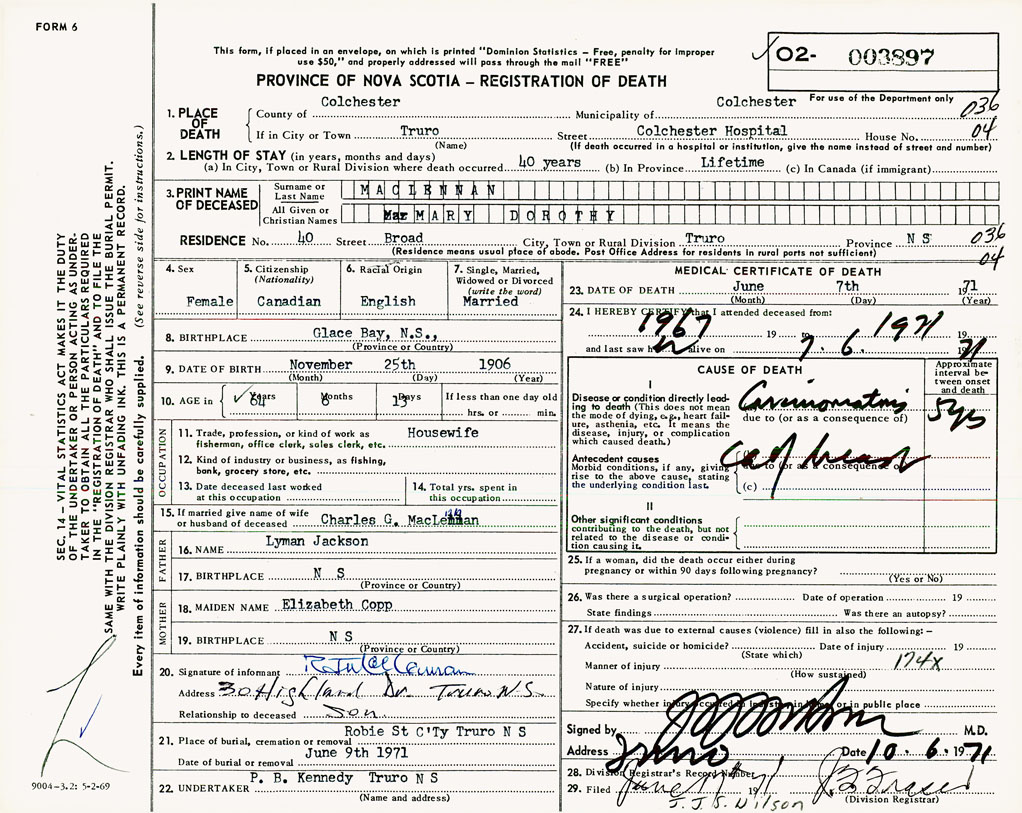 FORM 6
This form, if placed in an envelope, on which is printed "Dominion Statistics – Free, penalty for improper
use $50," and properly addressed will pass through the mail "FREE"
PROVINCE OF NOVA SCOTIA – REGISTRATION OF DEATH
O2- 003897
For use of the Department only
036
04
1. PLACE OF DEATH
County of Colchester Municipality of Colchester
If in City or Town Truro Street Colchester Hospital House No.
(Name) (If death occurred in a hospital or institution, give the name instead of street and number)
2. LENGTH OF STAY (in years, months and days)
(a) In City, Town or Rural Division where death occurred 40 years (b) In Province Lifetime (c) In Canada (if immigrant)
3. PRINT NAME OF DECEASED
Surname or Last Name MACLENNAN
All Given or Christian Names MARY DOROTHY
RESIDENCE No. 40 Street Broad City, Town or Rural Division Truro Province N S
036
04
(Residence means usual place of abode. Post Office Address for residents in rural ports not sufficient)
4. Sex
Female
5. Citizenship
(Nationality)
Canadian
6. Racial Origin
English
7. Single, Married,
Widowed or Divorced
(write the word)
Married
8. BIRTHPLACE Glace Bay, N.S.,
(Province or Country)
9. DATE OF BIRTH November 25th 1906
(Month) (Day) (Year)
10. AGE in ✓ 64 Years 6 Months 13 Days If less than one day old
hrs. or min.
OCCUPATION
11. Trade, profession, or kind of work as Housewife
fisherman, office clerk, sales clerk, etc.
12. Kind of industry or business, as fishing,
bank, grocery store, etc.
13. Date deceased last worked
at this occupation
14. Total yrs. spent in
this occupation
15. If married give name of wife
or husband of deceased Charles G. MacLennan
FATHER
16. NAME Lyman Jackson
17. BIRTHPLACE N S
(Province or Country)
MOTHER
18. MAIDEN NAME Elizabeth Copp
19. BIRTHPLACE N S
(Province or Country)
20. Signature of informant
Address 30 Highland Dr. Truro N.S.
Relationship to deceased Son
21. Place of burial, cremation or removal Robie St C'Ty Truro N S
Date of burial or removal June 9th 1971
22. UNDERTAKER P. B. Kennedy Truro N S
(Name and address)
MEDICAL CERTIFICATE OF DEATH
23. DATE OF DEATH June 7th 1971
(Month) (Day) (Year)
24. I HEREBY CERTIFY that I attended deceased from:
1967 19 1971 19
and last saw h alive on 7. 6. 1971
CAUSE OF DEATH
Approximate
interval be-
tween onset
and death
I
Disease or condition directly lead-
ing to death (This does not mean
the mode of dying, e.g., heart fail-
ure, asthenia, etc. It means the
disease, injury, or complication
which caused death.)
Carcinomatosis
5 yrs
due to (or as a consequence of)
Antecedent causes
Morbid conditions, if any, giving
rise to the above cause, stating
the underlying condition last.
Ca of breast
due to (or as a consequence of)
(c)
II
Other significant conditions
contributing to the death, but not
related to the disease or condi-
tion causing it.
25. If a woman, did the death occur either during
pregnancy or within 90 days following pregnancy?
(Yes or No)
26. Was there a surgical operation? Date of operation 19
State findings Was there an autopsy?
27. If death was due to external causes (violence) fill in also the following: –
Accident, suicide or homicide? Date of injury 19
(State which)
174X
Manner of injury
(How sustained)
Nature of injury
Specify whether injury occurred in industry, in home, or in public place
Signed by M.D.
Address Truro Date 10. 6. 1971
28. Division Registrar's Record Number
29. Filed June 19 71
J.J.S. Wilson
(Division Registrar)
SEC. 14 – VITAL STATISTICS ACT MAKES IT THE DUTY
OF THE UNDERTAKER OR PERSON ACTING AS UNDER-
TAKER TO OBTAIN ALL THE PARTICULARS REQUIRED
IN THE "REGISTRATION OF DEATH" AND TO FILE THE
SAME WITH THE DIVISION REGISTRAR WHO SHALL ISSUE THE BURIAL PERMIT.
WRITE PLAINLY WITH UNFADING INK. THIS IS A PERMANENT RECORD.
Every item of information should be carefully supplied. (See reverse side for instructions.)
9004-3.2: 5-2-69